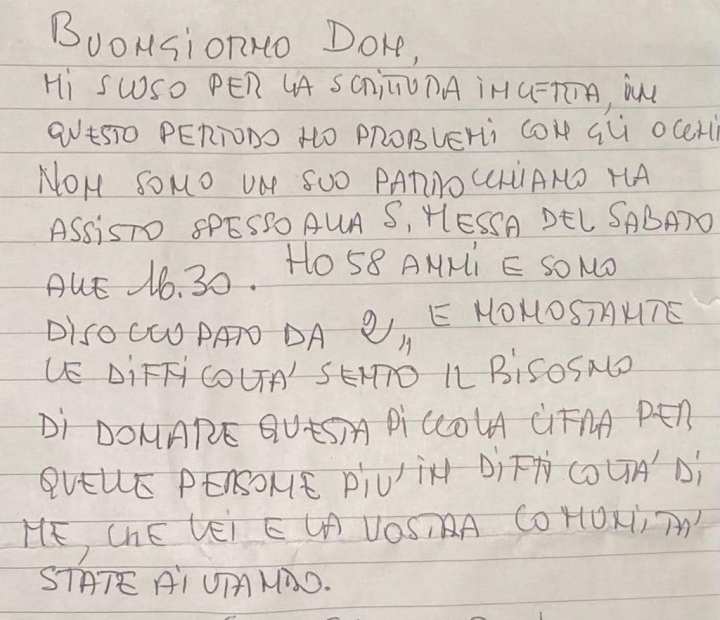 BUONGIORNO DON,
MI SCUSO PER LA SCRITTURA INCERTA, IN
QUESTO PERIODO HO PROBLEMI CON GLI OCCHI
NON SONO UN SUO PARROCCHIANO MA
ASSISTO SPESSO ALLA S. MESSA DEL SABATO
ALLE 16.30. HO 58 ANNI E SONO
DISOCCUPATO DA 2,, E NONOSTANTE
LE DIFFICOLTA' SENTO IL BISOGNO
DI DONARE QUESTA PICCOLA CIFRA PER
QUELLE PERSONE PIU' IN DIFFICOLTA' DI
ME, CHE LEI E LA VOSTRA COMUNITA'
STATE AIUTANDO.